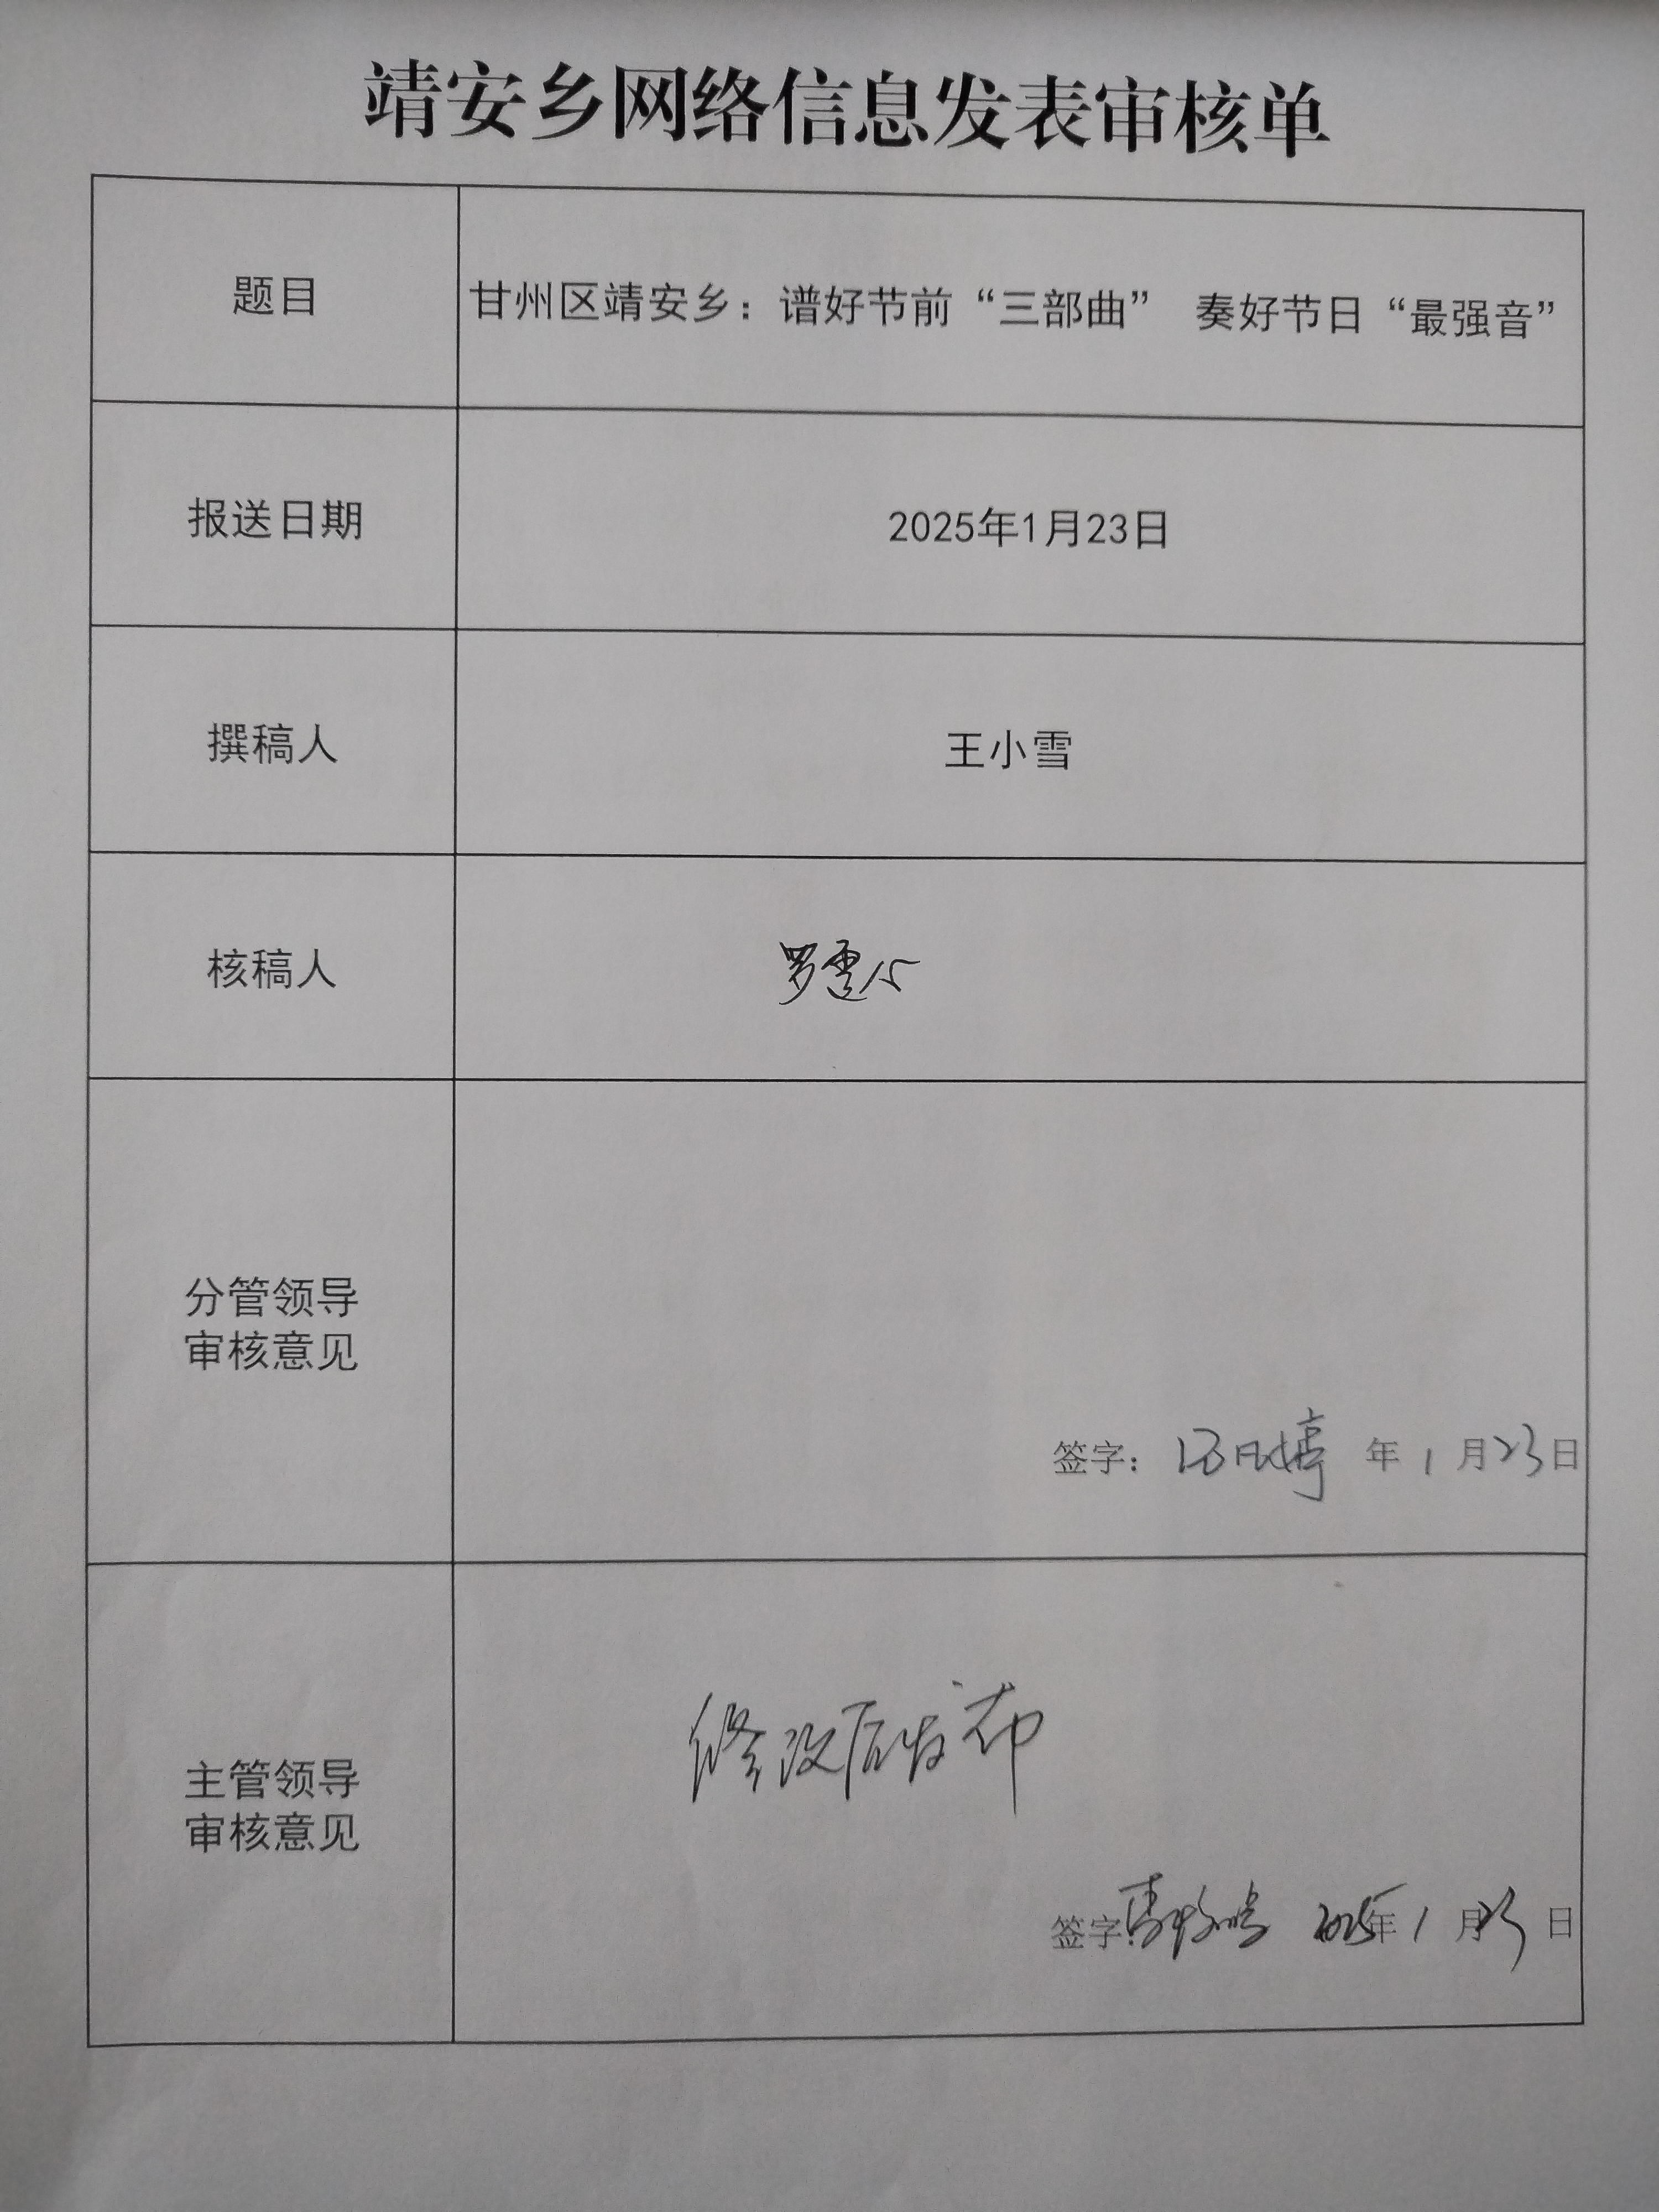 靖安乡网络信息发表审核单
题目
甘州区靖安乡：谱好节前“三部曲” 奏好节日“最强音”
报送日期
2025年1月23日
撰稿人
王小雪
核稿人
分管领导
审核意见
签字： 年 1 月 23 日
主管领导
审核意见
修改后发布
签字: 2025年 1 月 23 日